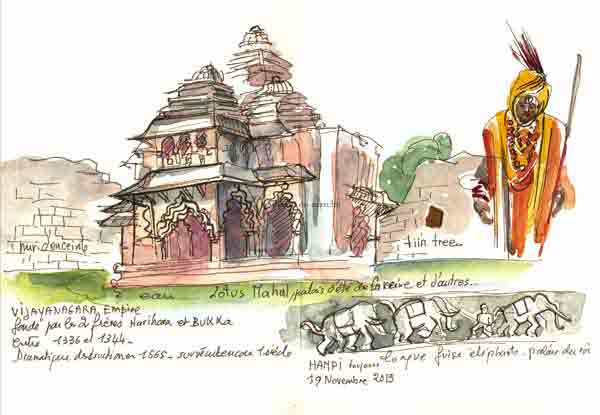 mur d'enceinte
tiin tree
eau
Lotus Mahal, palais d'été de la Reine et d'autres...
VIJAYANAGARA, Empire
fondé par les 2 frères Harihara et BUKKA
entre 1336 et 1344-
Dramatique destruction en 1565- survécut encore 1 siècle
HAMPI toujours Longue frise éléphants- palais du roi
19 Novembre 2013